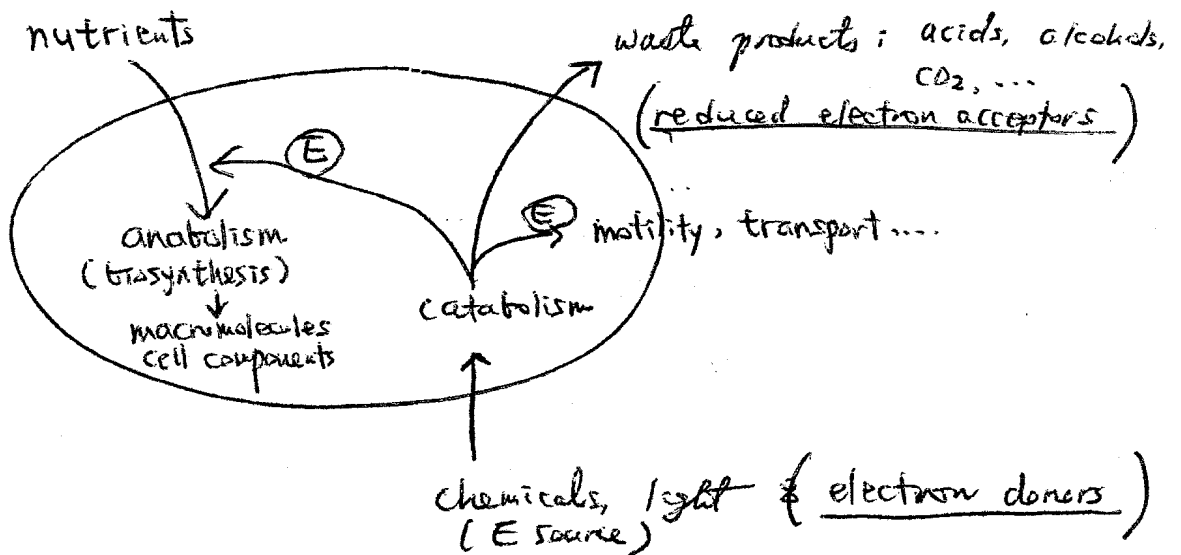 nutrients
waste products : acids, alcohols,
CO2, ...
(reduced electron acceptors)
E
E
motility, transport....
anabolism
(biosynthesis)
catabolism
macromolecules
cell components
chemicals, light (electron donors)
(E source)